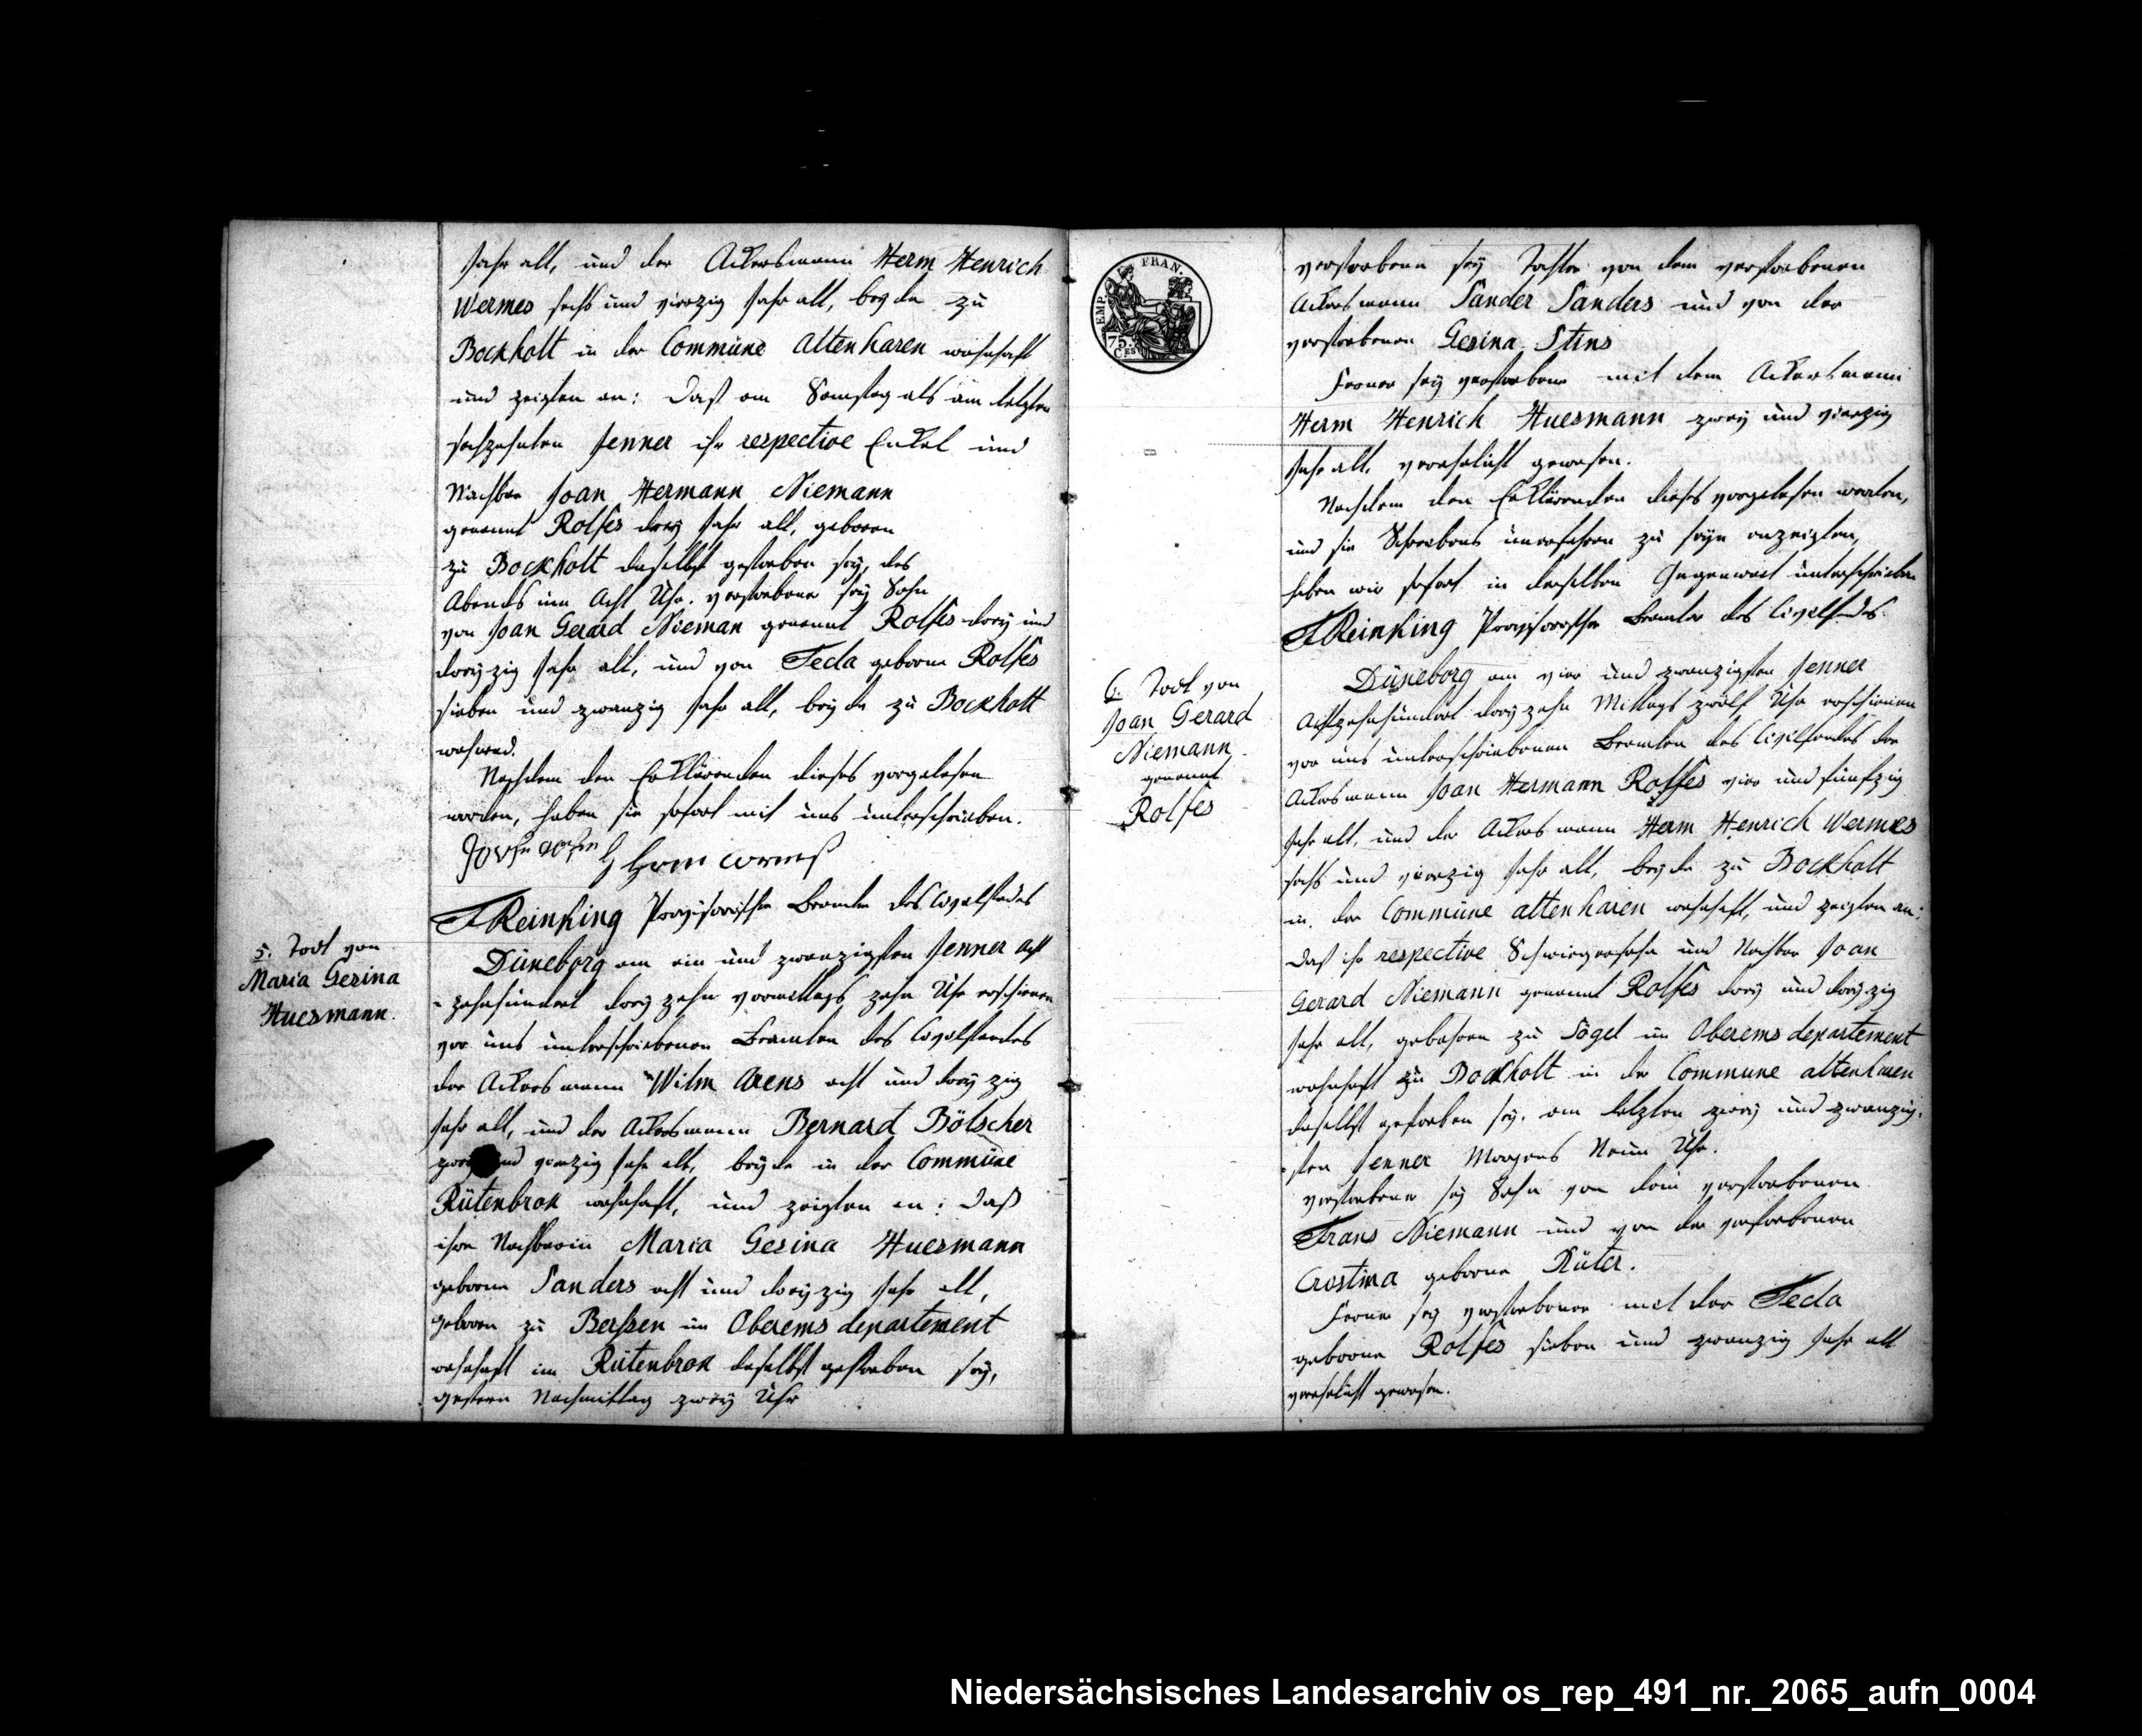 Jahr alt, und der Ackersmann Herm Henrich
Wermes sechs und vierzig Jahr alt, beyde zu
Bockholt in der Commüne Altenharen wohnhaft
und zeigten an: Daß am Samstag als am letzten
sechzehnten Jenner ihr respective Enkel und
Nachbar Joan Hermann Niemann
genannt Rolfes drey Jahr alt, geboren
zu Bockholt daselbst gestorben sey, des
Abends um Acht Uhr. verstorbener sey Sohn
von Joan Gerard Nieman genannt Rolfes drey und
dreyzig Jahr alt, und von Teda geborne Rolfes
sieben und zwanzig Jahr alt, beyde zu Bockholt
wohnend.
Nachdem den Erklärenden dieses vorgelesen
worden, haben sie sofort mit uns unterschrieben.
Reinking Provisorischer Beamter des Civilstandes
5. Todt von
Maria Gesina
Huesmann.
Düneborg am ein und zwanzigsten Jenner acht
-zehnhundert dreyzehn vormittags zehn Uhr erschienen
vor uns unterschriebenen Beamten des Civilstandes
der Ackersmann Wilm Arens acht und dreyzig
Jahr alt, und der Ackersmann Bernard Bölscher
zwey und vierzig Jahr alt, beyde in der Commüne
Rütenbrok wohnhaft, und zeigten an: Daß
ihre Nachbarin Maria Gesina Huesmann
geborne Sanders acht und dreyzig Jahr alt,
geboren zu Berßen im Oberems departement
wohnhaft im Rütenbrok daselbst gestorben sey,
gestern Nachmittag zwey Uhr
EMP. FRAN.
75.
CES
verstorbene sey Tochter von dem verstorbenen
Ackersmann Sander Sanders und von der
verstorbenen Gesina Stins
Ferner sey verstorbene mit dem Ackersmann
Herm Henrich Huesmann zwey und vierzig
Jahr alt, verehelicht gewesen.
Nachdem den Erklärenden dieses vorgelesen worden,
und sie Schreibens unerfahren zu seyn anzeigten,
haben wir sofort in derselben Gegenwart unterschrieben
Reinking Provisorischer Beamter des Civilstandes.
6. Todt von
Joan Gerard
Niemann
genannt
Rolfes
Düneborg am vier und zwanzigsten Jenner
Achtzehnhundert dreyzehn Mittags zwölf Uhr erschienen
vor uns unterschriebenen Beamten des Civilstandes der
Ackersmann Joan Hermann Rolfes vier und fünfzig
Jahr alt, und der Ackersmann Herm Henrich Wermes
sechs und vierzig Jahr alt, beyde zu Bockholt
in der Commüne altenharen wohnhaft, und zeigten an:
Daß ihr respective Schwiegersohn und Nachbar Joan
Gerard Niemann genannt Rolfes drey und dreyzig
Jahr alt, gebohren zu Sögel im Oberems departement
wohnhaft zu Bockholt in der Commune altenharen
daselbst gestorben sey. am letzten zwey und zwanzig-
-sten Jenner Morgens Neun Uhr.
verstorbener sey Sohn von dem verstorbenen
Frans Niemann und von der verstorbenen
Crestina geborne Rüter.
Ferner sey verstorbener mit der Teda
geborne Rolfes sieben und zwanzig Jahr alt
verehelicht gewesen.
Niedersächsisches Landesarchiv os_rep_491_nr._2065_aufn_0004